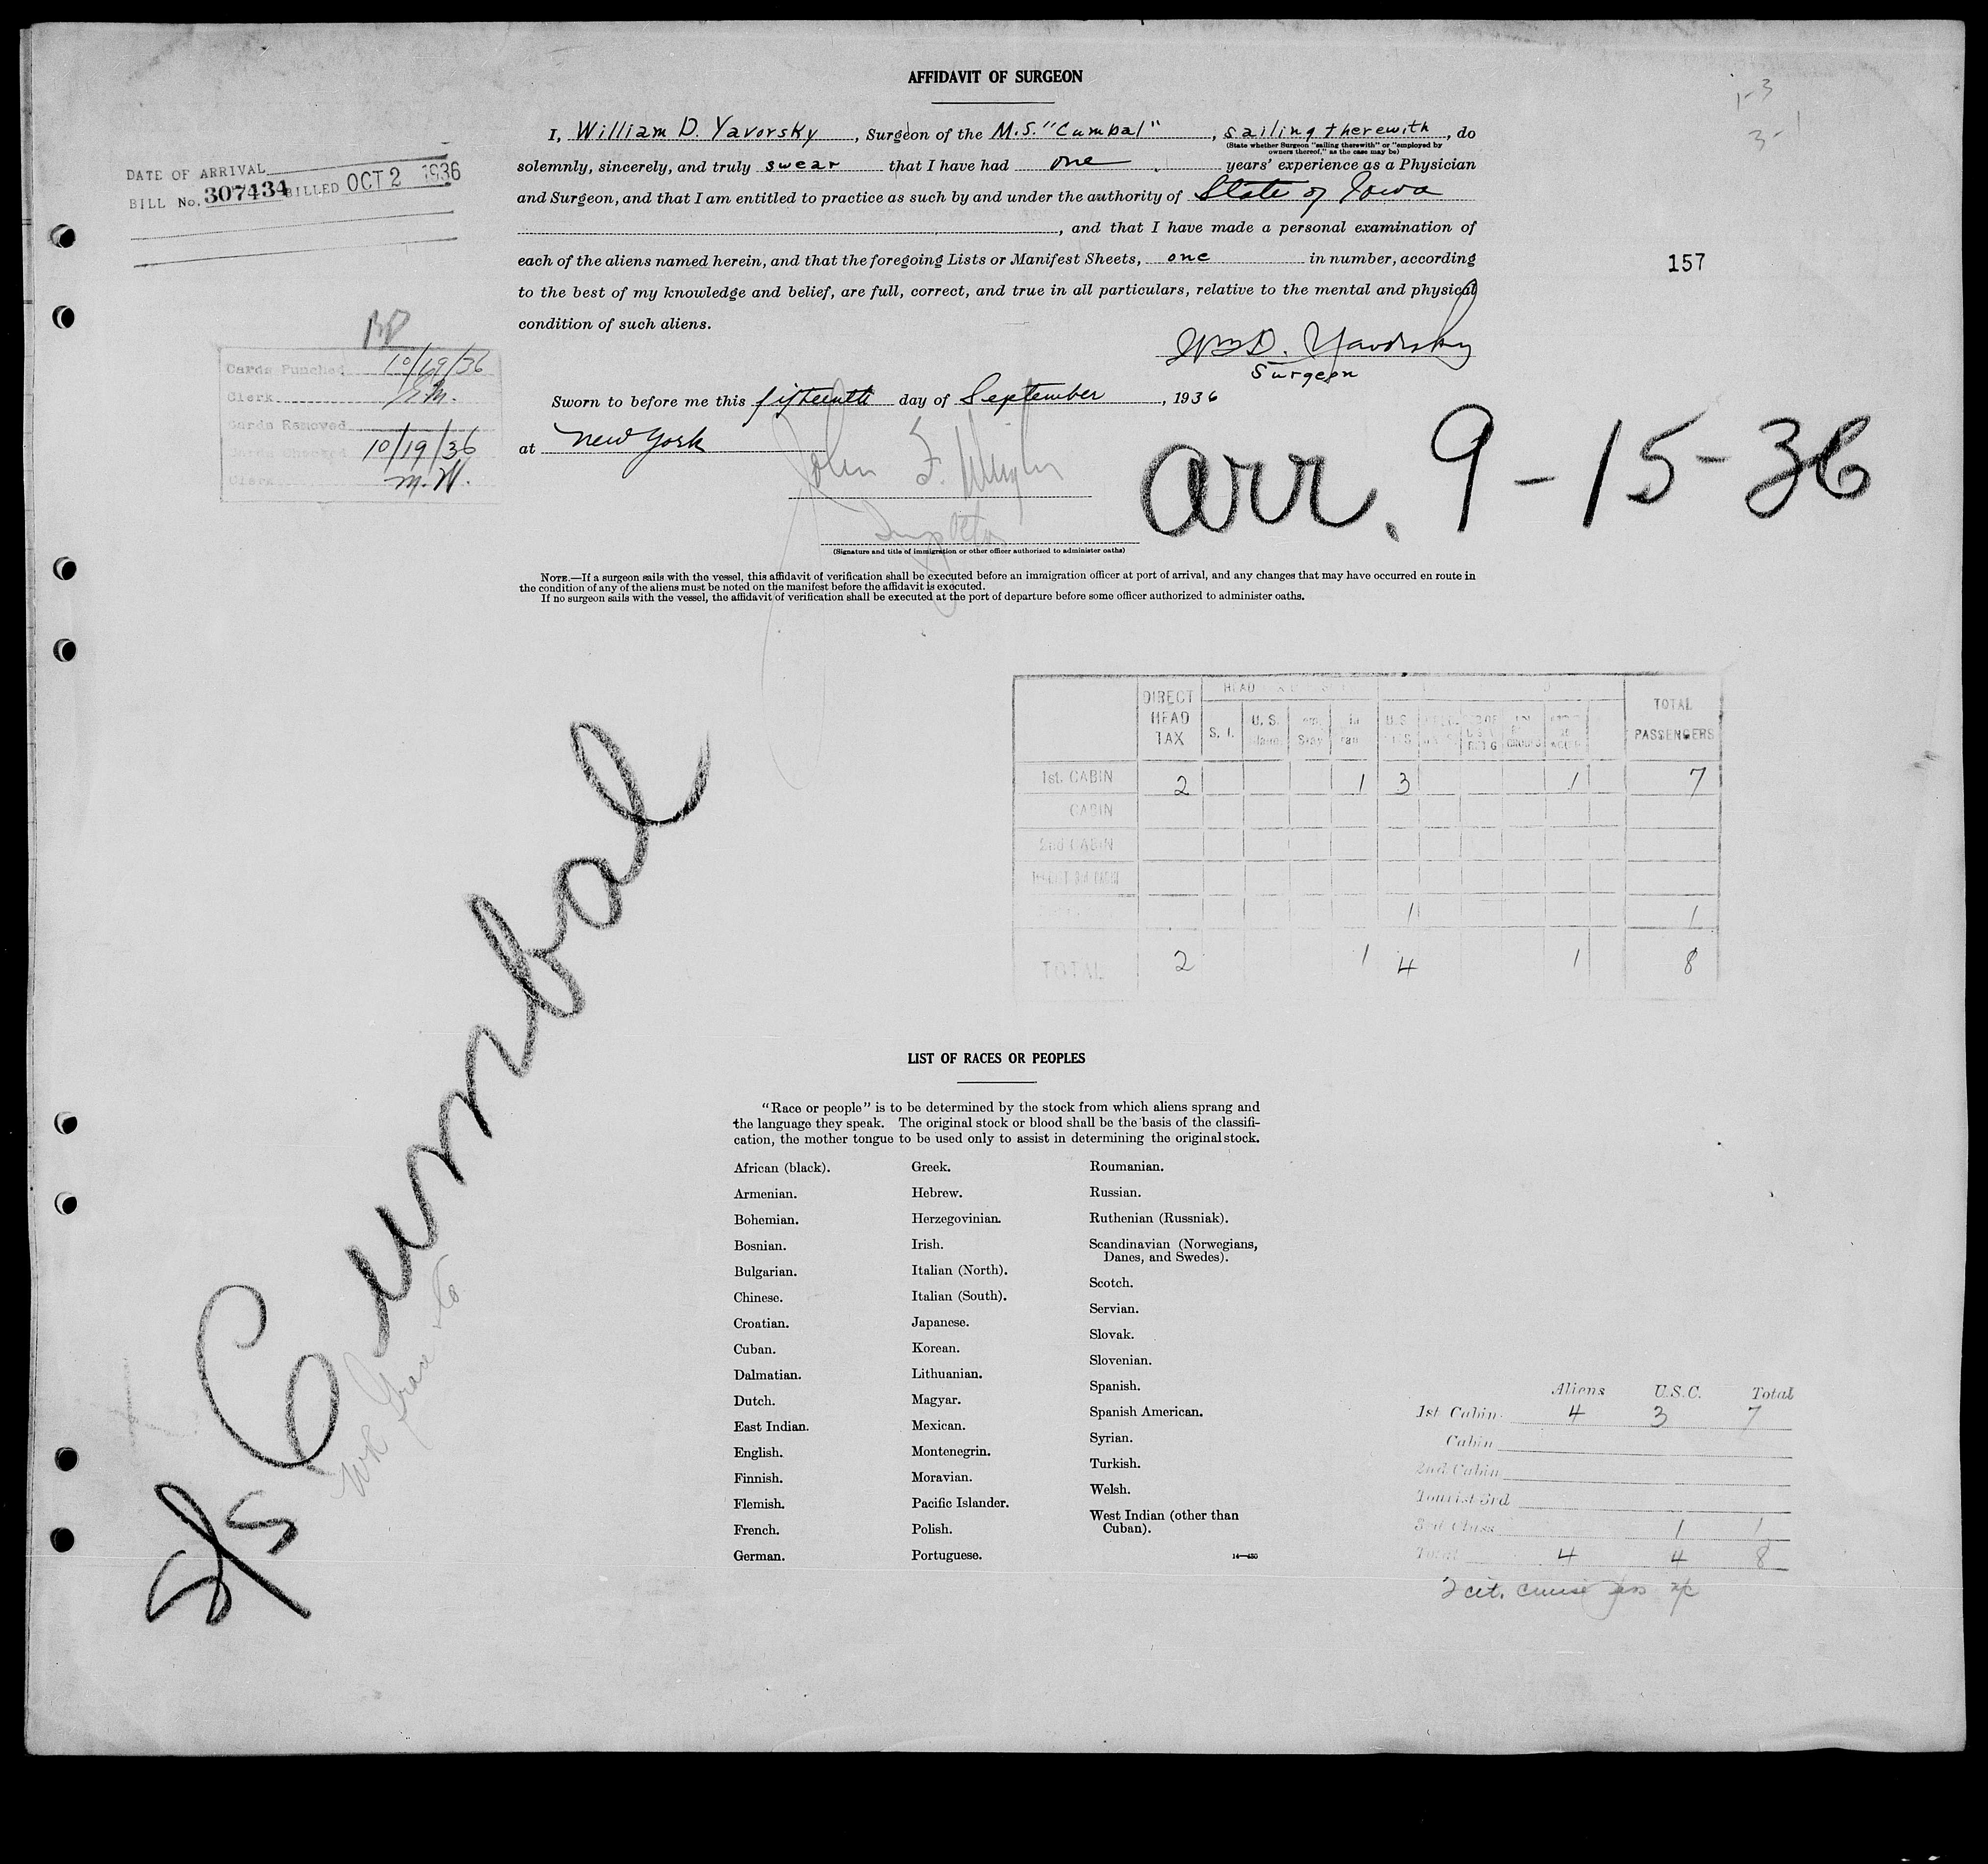 AFFIDAVIT OF SURGEON
1-3
3-1
I, William D. Yavorsky, Surgeon of the M.S. "Cumbal", sailing therewith, do
(State whether Surgeon "sailing therewith" or "employed by
owners thereof," as the case may be)
solemnly, sincerely, and truly swear that I have had one years' experience as a Physician
and Surgeon, and that I am entitled to practice as such by and under the authority of State of Iowa
, and that I have made a personal examination of
each of the aliens named herein, and that the foregoing Lists or Manifest Sheets, one in number, according
to the best of my knowledge and belief, are full, correct, and true in all particulars, relative to the mental and physical
condition of such aliens.
Wm D. Yavorsky
Surgeon
Sworn to before me this fifteenth day of September, 1936
at New York
John F.
Inspector
(Signature and title of immigration or other officer authorized to administer oaths)
DATE OF ARRIVAL
BILL No. 307434 BILLED OCT 2 1936
157
Cards Punched 10/19/36
Clerk
Cards Removed
Cards Checked 10/19/36
Clerk M.W.
arr. 9-15-36
NOTE.—If a surgeon sails with the vessel, this affidavit of verification shall be executed before an immigration officer at port of arrival, and any changes that may have occurred en route in
the condition of any of the aliens must be noted on the manifest before the affidavit is executed.
If no surgeon sails with the vessel, the affidavit of verification shall be executed at the port of departure before some officer authorized to administer oaths.
DIRECT HEAD TAX HEAD S. I. U. S. U.S. TOTAL PASSENGERS
1st. CABIN 2 1 3 1 7
CABIN
2nd CABIN
1 1
TOTAL 2 1 4 1 8
S/S Cumbal
LIST OF RACES OR PEOPLES
"Race or people" is to be determined by the stock from which aliens sprang and
the language they speak. The original stock or blood shall be the basis of the classifi-
cation, the mother tongue to be used only to assist in determining the original stock.
African (black).
Armenian.
Bohemian.
Bosnian.
Bulgarian.
Chinese.
Croatian.
Cuban.
Dalmatian.
Dutch.
East Indian.
English.
Finnish.
Flemish.
French.
German.
Greek.
Hebrew.
Herzegovinian.
Irish.
Italian (North).
Italian (South).
Japanese.
Korean.
Lithuanian.
Magyar.
Mexican.
Montenegrin.
Moravian.
Pacific Islander.
Polish.
Portuguese.
Roumanian.
Russian.
Ruthenian (Russniak).
Scandinavian (Norwegians,
Danes, and Swedes).
Scotch.
Servian.
Slovak.
Slovenian.
Spanish.
Spanish American.
Syrian.
Turkish.
Welsh.
West Indian (other than
Cuban).
14—430
Aliens U.S.C. Total
1st Cabin 4 3 7
Cabin
2nd Cabin
Tourist 3rd
3rd Class 1 1
Total 4 4 8
2 cit. cruise